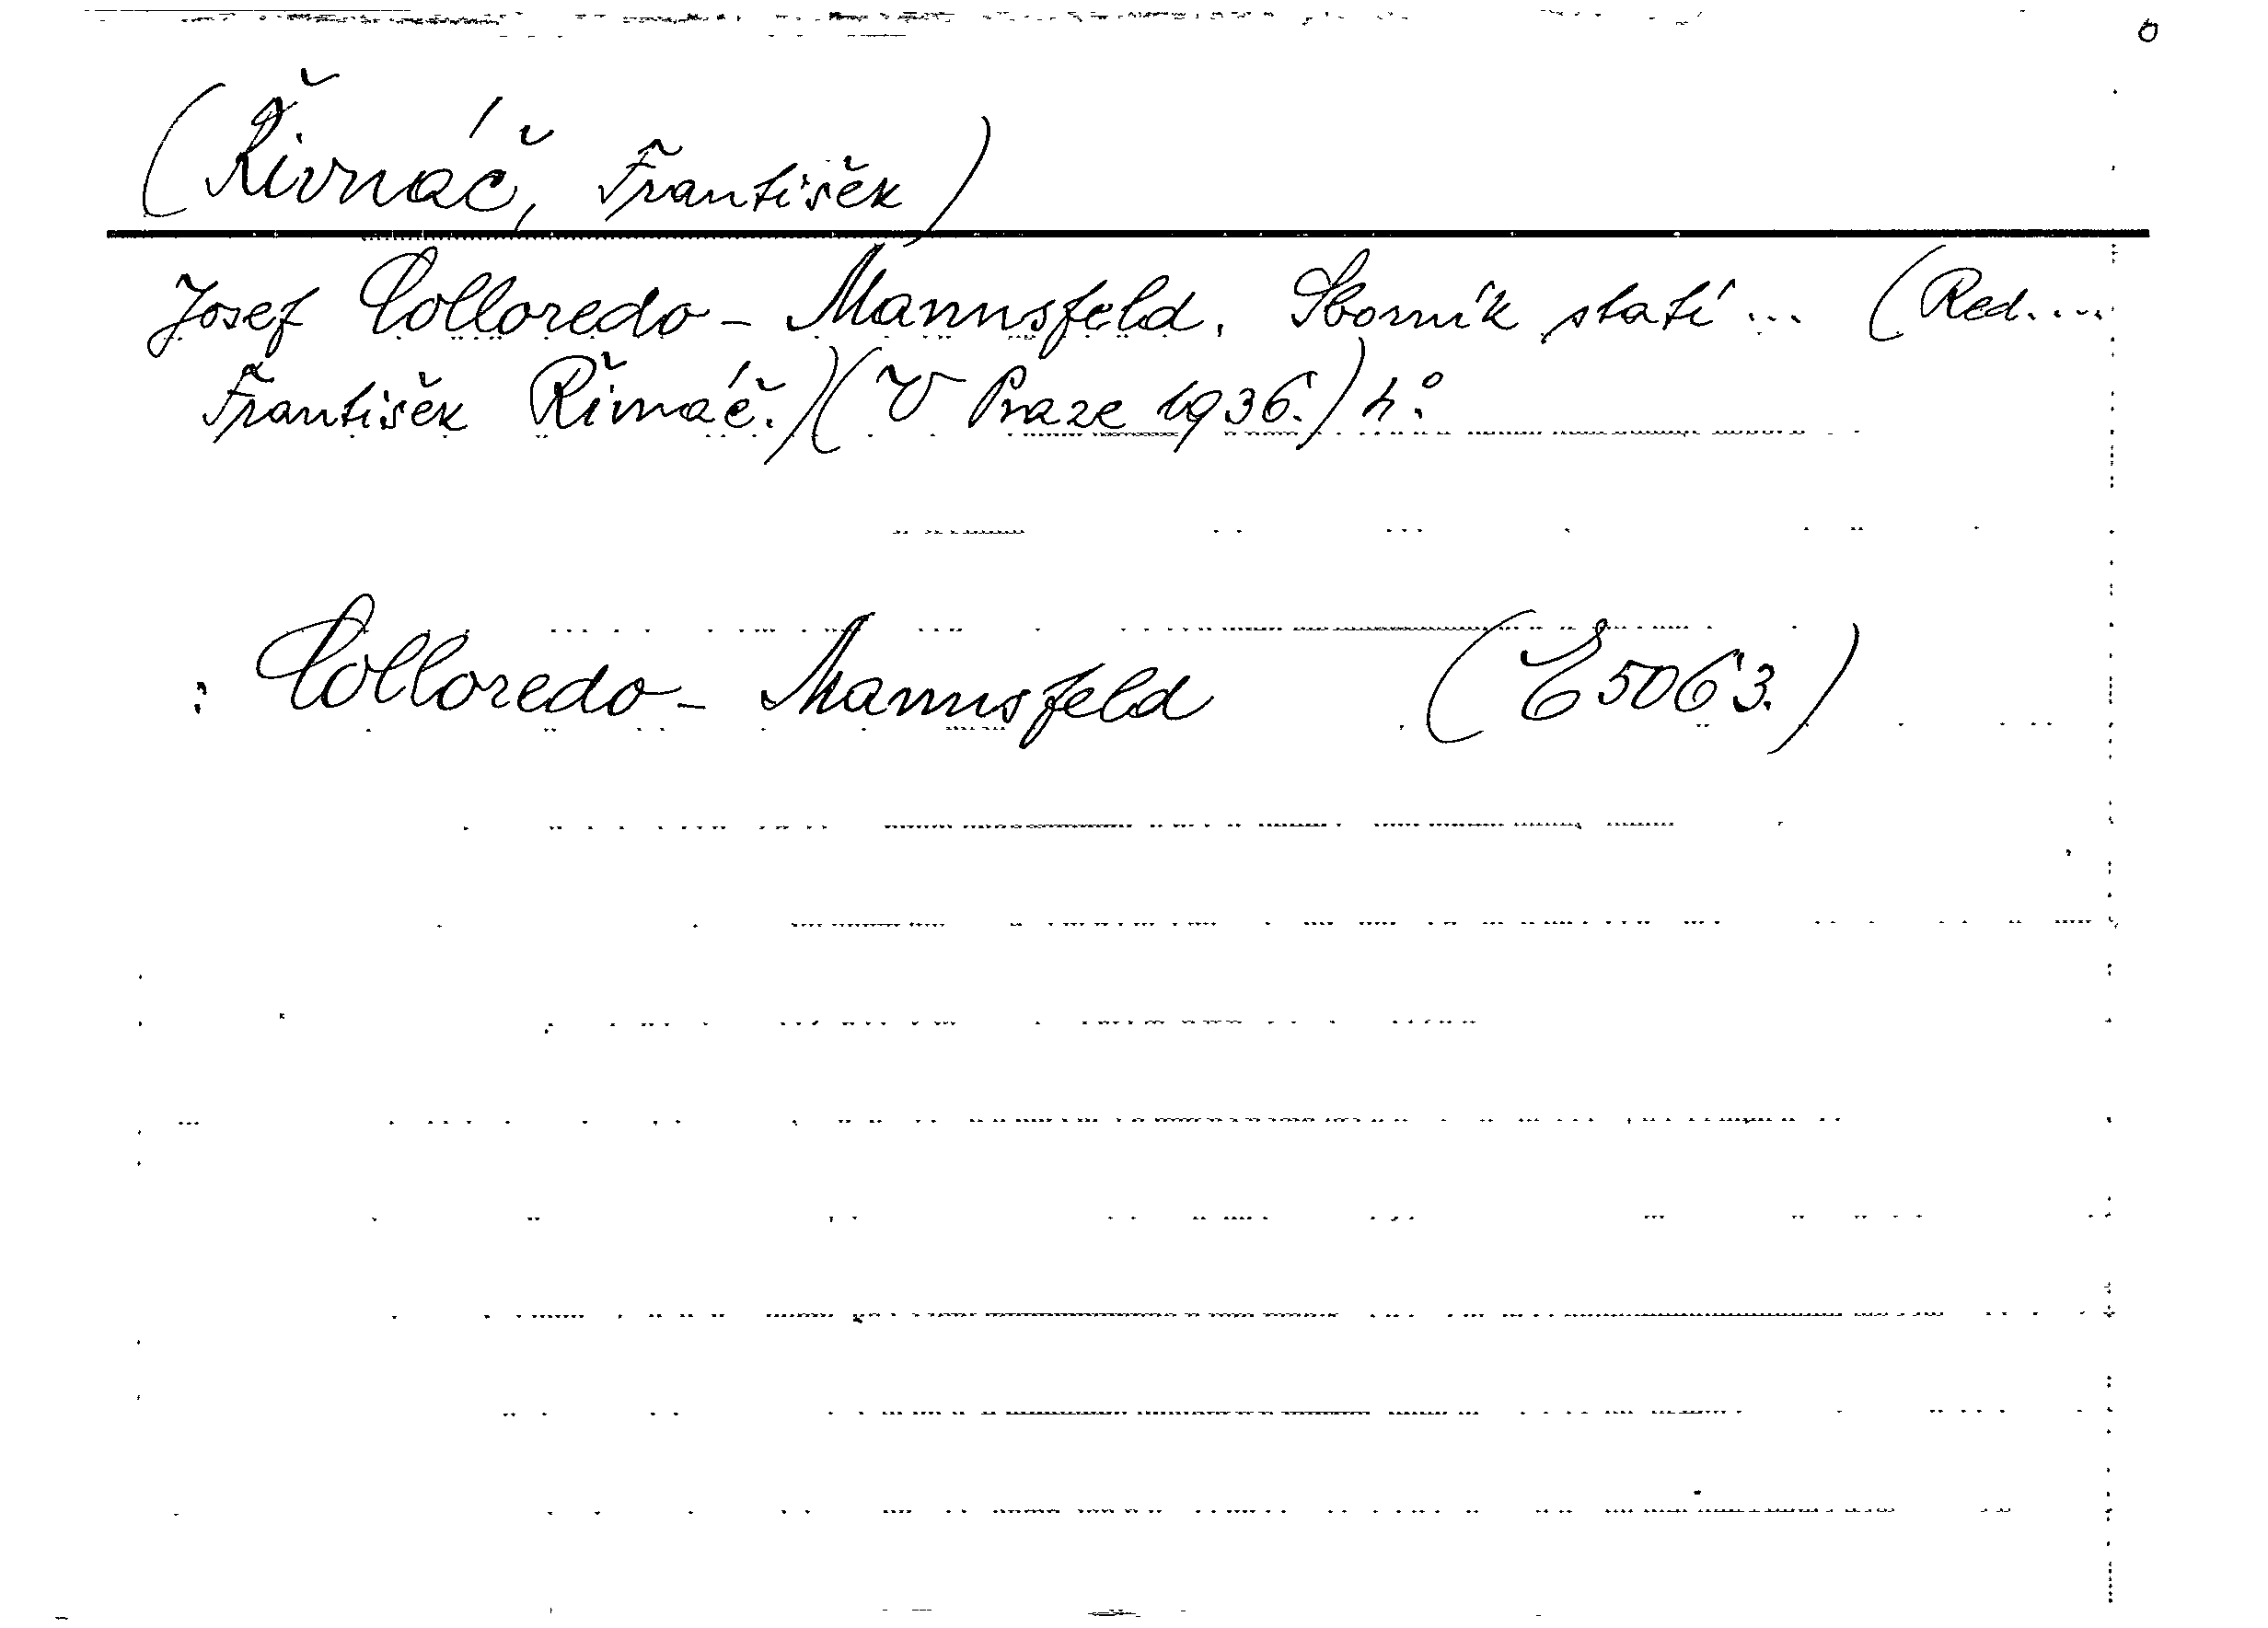 (Řivnáč, František)
Josef Colloredo - Mannsfeld. Sborník statí ... (Red. ...
František Řivnáč.) (V Praze 1936.) 4°.
: Colloredo - Mannsfeld (E 5063.)